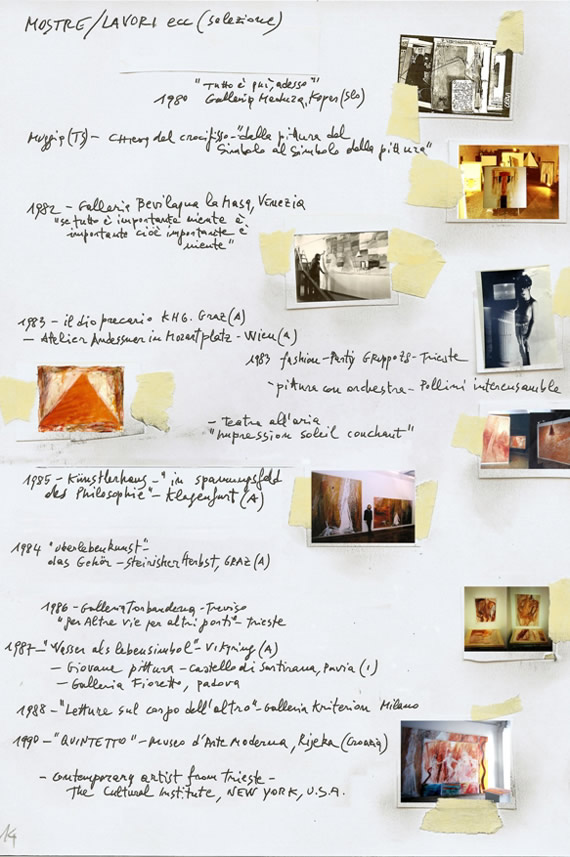 MOSTRE/LAVORI ecc (selezione)
"Tutto è qui, adesso"
1980 Galleria Meduza, Koper (Slo)
Muggia (TS) - Chiesa del crocifisso - "della pittura del
Simbolo al Simbolo della pittura"
1982 - Galleria Bevilaqua la Masa, Venezia
"se tutto è importante niente è
importante cioè importante è
niente"
1983 - il dio precario KHG. Graz (A)
- Atelier Andessner in Mozartplatz - Wien (A)
1983 fashion - Party GRUPPO78 - Trieste
- pittura con orchestra - Pollini interensamble
- Teatro all'aria
"Impression soleil couchant"
1985 - Künstlerhaus - "in spannungsfeld
des Philosophie" - Klagenfurt (A)
1984 "überlebenkunst" -
das Gehör - steirisher Herbst, GRAZ (A)
1986 - Galleria Torbandena - Treviso
"per Altre vie per altri porti" - Trieste
1987 - "Wasser als lebensimbol" - Viktring (A)
- Giovane pittura - Castello di Sartirana, Pavia (I)
- Galleria Fioretto, padova
1988 - "Letture sul corpo dell'altro" - Galleria Kriterion Milano
1990 - "QUINTETTO" - Museo d'Arte Moderna, Rijeka (Croazia)
- Contemporary artist from Trieste -
The Cultural Institute, NEW YORK, U.S.A.